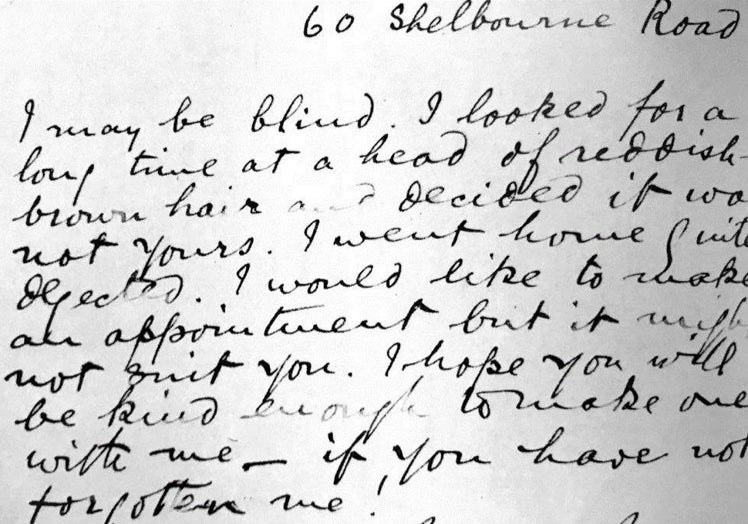 60 Shelbourne Road
I may be blind. I looked for a
long time at a head of reddish-
brown hair and decided it wa
not yours. I went home quite
dejected. I would like to make
an appointment but it migh
not suit you. I hope you will
be kind enough to make one
with me — if you have not
forgotten me!